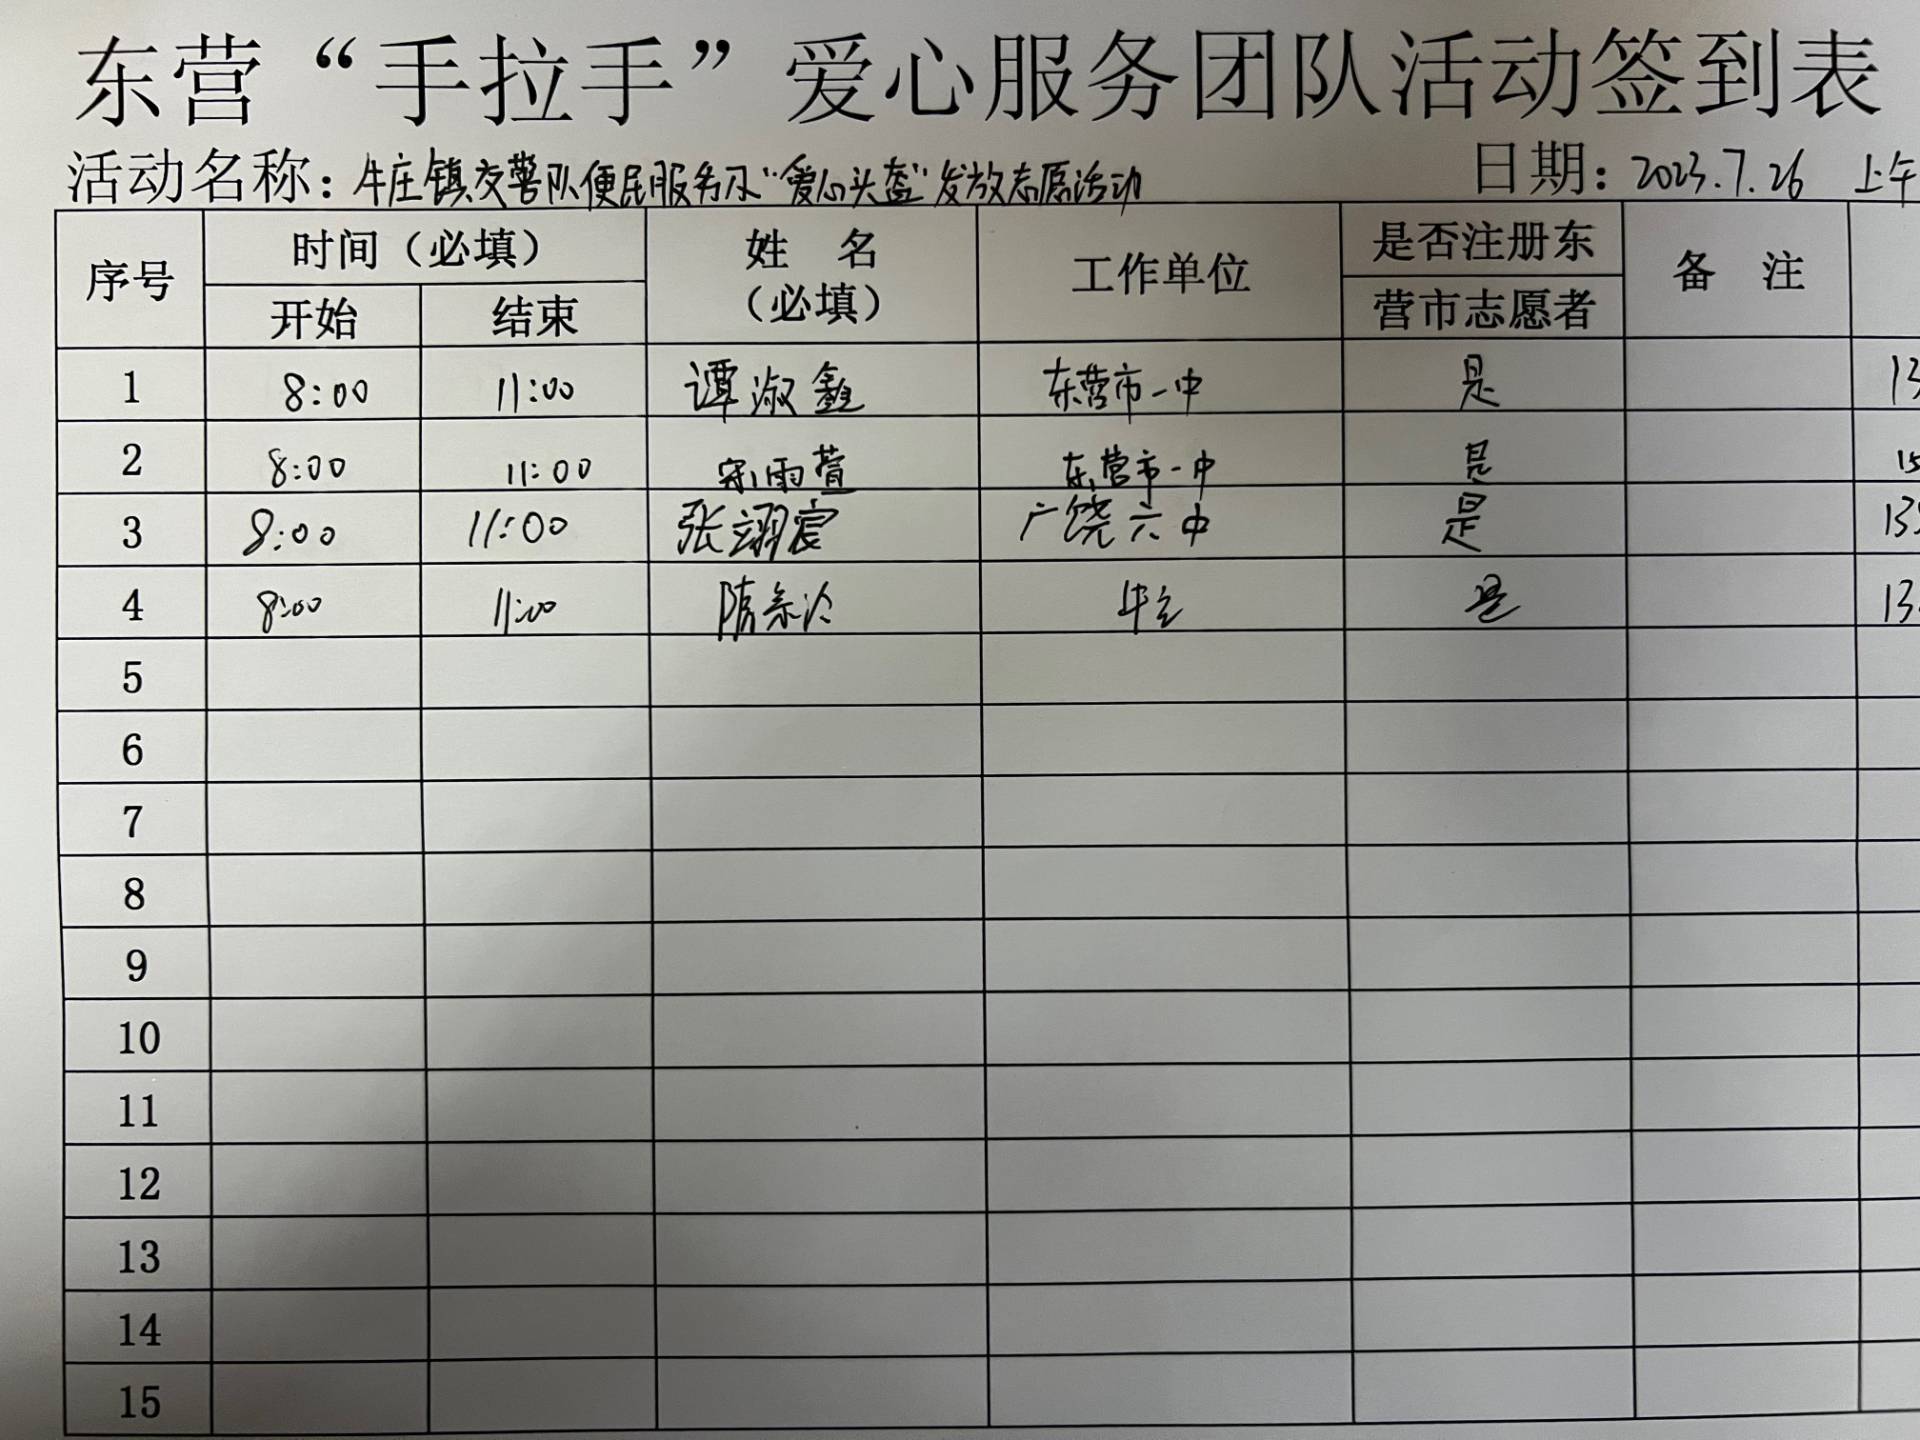 东营“手拉手”爱心服务团队活动签到表
活动名称：牛庄镇交警队便民服务及“爱心头盔”发放志愿活动 日期：2023.7.26 上午
序号 时间（必填） 开始 结束 姓 名（必填） 工作单位 是否注册东营市志愿者 备 注
1 8:00 11:00 谭淑鑫 东营市一中 是 13
2 8:00 11:00 雨萱 东营市一中 是 15
3 8:00 11:00 张翊宸 广饶六中 是 13
4 8:00 11:00 隋 牛庄 是 13
5
6
7
8
9
10
11
12
13
14
15